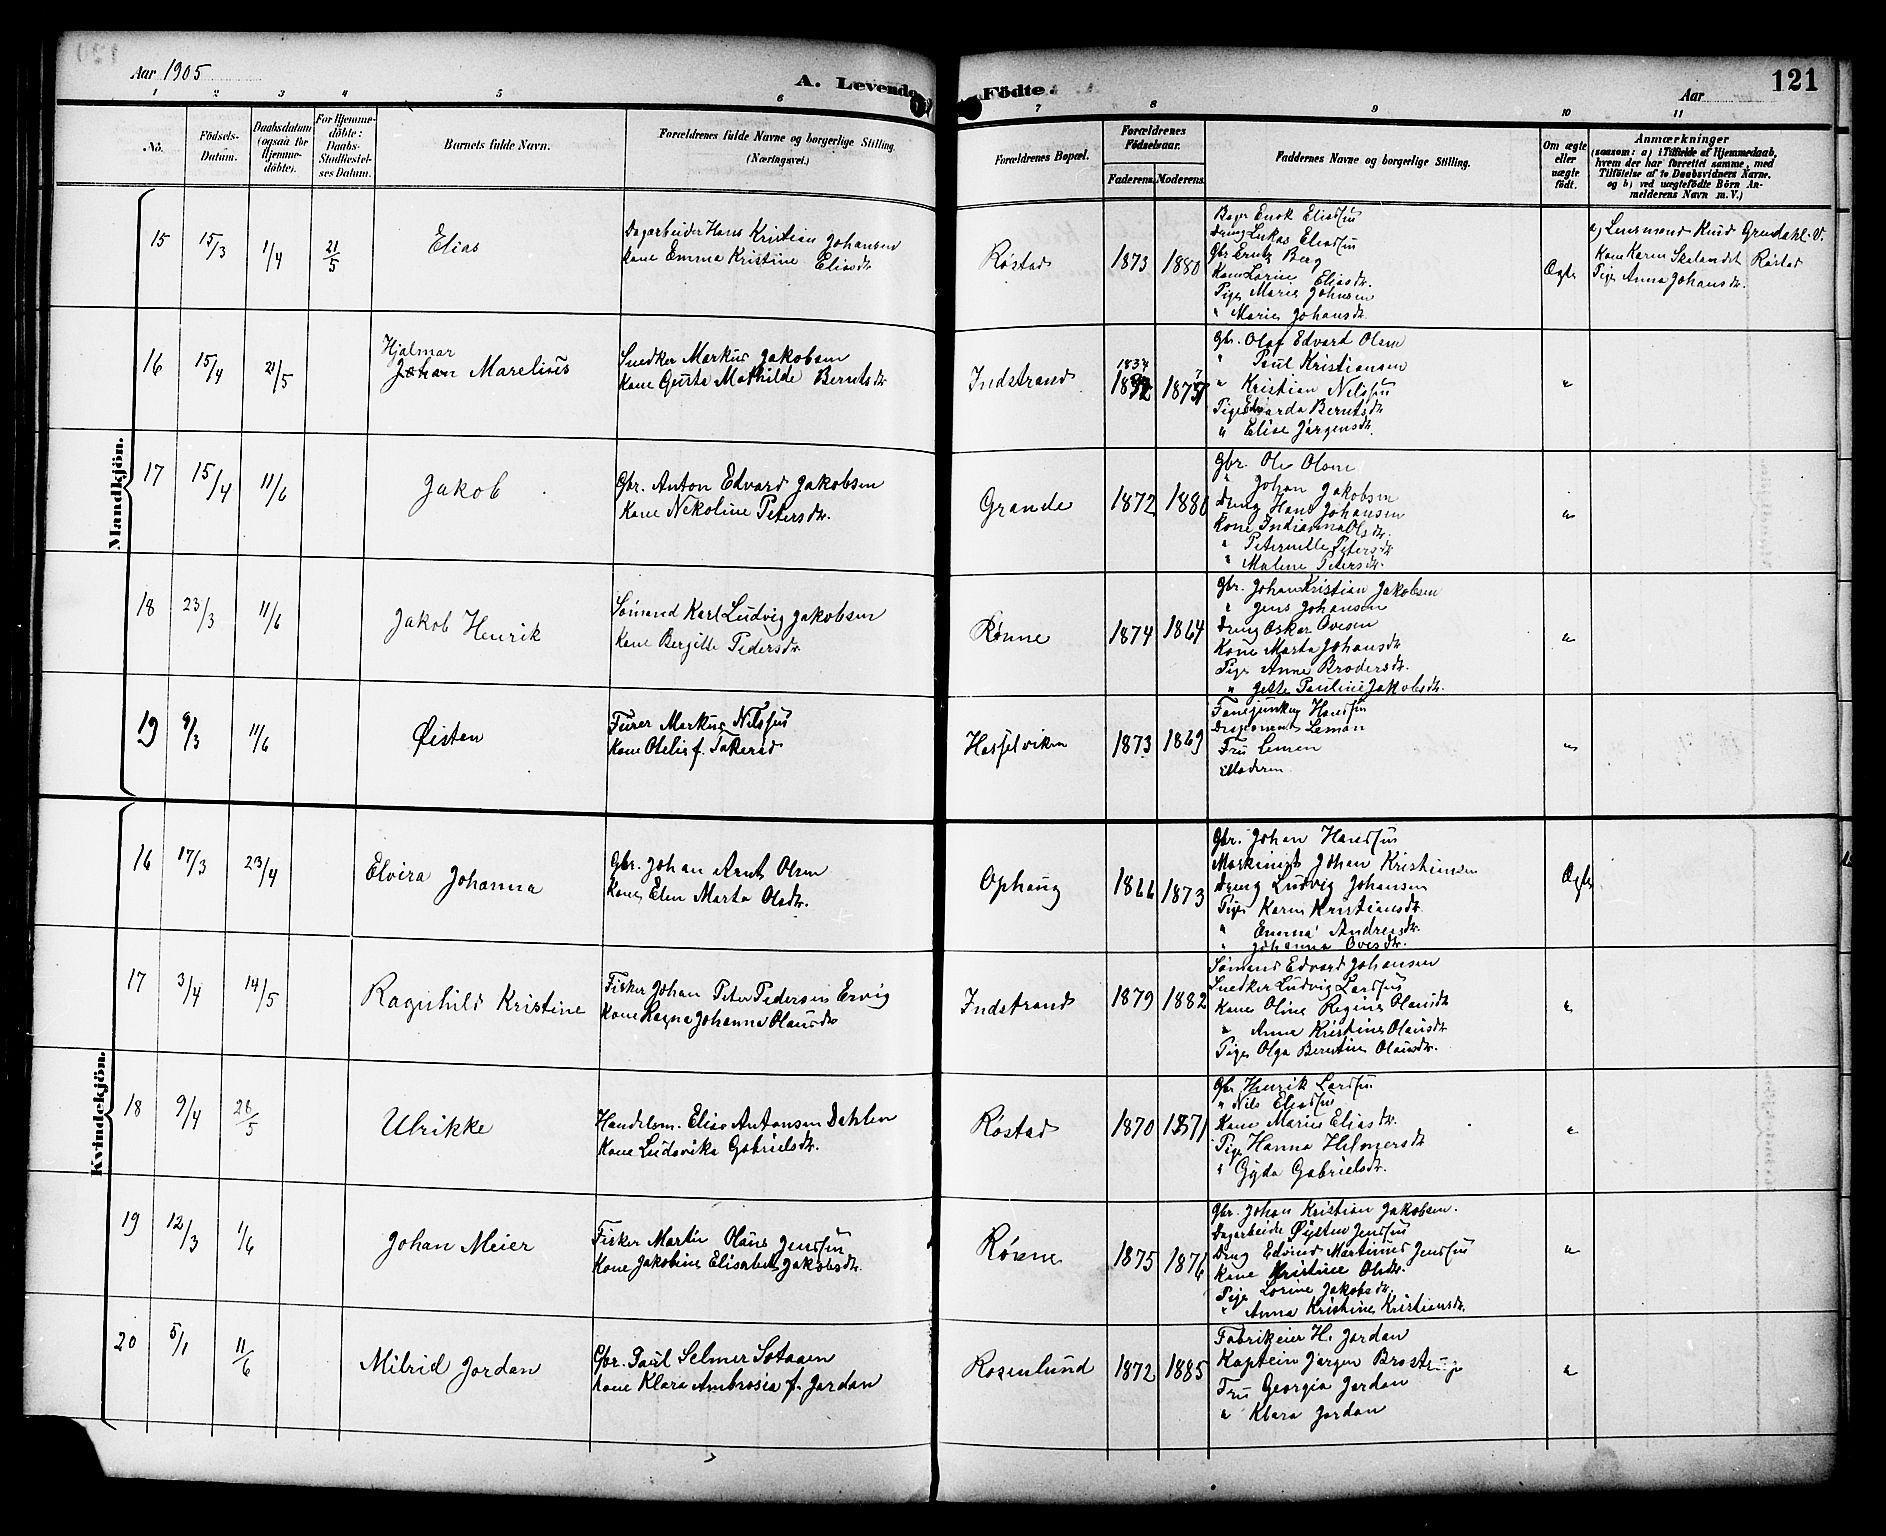 Aar 1905
A. Levende Födte.
Aar
121
1 2 3 4 5 6 7 8 9 10 11
No.
Födsels-Datum.
Daabsdatum (ogsaa for Hjemmedöbte).
For Hjemmedöbte: Daabs-Stadfæstelses Datum.
Barnets fulde Navn.
Forældrenes fulde Navne og borgerlige Stilling. (Næringsvei.)
Forældrenes Bopæl.
Forældrenes Födselsaar.
Faderens. Moderens.
Faddernes Navne og borgerlige Stilling.
Om ægte eller uægte født.
Anmærkninger
(saasom: a) i Tilfælde af Hjemmedaab,
hvem der har forrettet samme, med
Tilföielse af to Daabsvidners Navne.
og b) ved uægtefödte Börn Anmelderens Navn m. V.)
Mandkjön.
15 15/3 1/4 21/5 Elias
Dagarbeider Hans Kristian Johansen
Kone Emma Kristine Eliasdtr
Røstad 1873 1880
Enok Eliassen
Dreng Lukas Eliassen
Gbr. Berg
Kone Lorine Eliasdtr.
Pige Marie Johnsen
" Marie Johansdtr.
Ægte
a) Lensmand Knud Grendahl.
Kone Karen Røstad
Pige Anna Johansdtr.
16 15/4 21/5 Hjalmar
Johan Marelius
Snedker Markus Jakobsen
Kone Gusta Mathilde Berntsdtr
Indstrand 1834 1875
Gbr. Olaf Edvard Olsen
" Paul Kristiansen
" Kristian Nilssen
Pige Edvarda Berntsdtr
" Elise Jörgensdtr.
"
17 15/4 11/6 Jakob
Gbr. Anton Edvard Jakobsen
Kone Nekoline Petersdtr.
Grande 1872 1880
Gbr. Ole Olsen
" Johan Jakobsen
Dreng Hans Johansen
Kone Indianna Olsdtr.
" Peternelle Petersdtr
" Malene Petersdtr.
"
18 23/3 11/6 Jakob Henrik
Sömand Karl Ludvig Jakobsen
Kone Bergitte Pedersdtr.
Rönne 1874 1864
Gbr. Johan Kristian Jakobsen
" Jens Johansen
Dreng Oskar Ovesen
Kone Marta Johansdtr
Pige Anne Brodersdtr.
" Jette Pauline Jakobsdtr.
"
19 9/3 11/6 Øisten
Furer Markus Nilssen
Kone Otelie f.
Hasselviken 1873 1869
Fanejunker Hanssen
Disponent Leman
Fru Leman
Moderen
"
Kvindekjön.
16 17/3 23/4 Elvira Johanna
Gbr. Johan Arnt Olsen
Kone Elen Marta Olsdtr.
Ophaug 1866 1873
Gbr. Johan Hanssen
Maskinist Johan Kristiansen
Dreng Ludvig Johansen
Pige Karen Kristiansdtr.
" Emma Andreasdtr.
" Johanna Ovesdtr.
Ægte
17 3/4 14/5 Ragnhild Kristine
Fisker Johan Peter Pedersen Ervig
Kone Ragna Johanna Olausdtr
Indstrand 1879 1882
Sömand Edvard Johansen
Snedker Ludvig Larssen
Kone Oline Regine Olausdtr
" Anna Kristine Olausdtr
Pige Olga Berntine Olausdtr.
"
18 9/4 28/5 Ulrikke
Handelsm. Elias Antonsen Dahlen
Kone Ludovika Gabrielsdtr.
Røstad 1870 1871
Gbr Henrik Larssen
" Nils Eliassen
Kone Marie Eliasdtr.
Pige Hanna Hilmersdtr
" Gyda Gabrielsdtr.
"
19 12/3 1/6 Johan Meier
Fisker Martin Olaus Jenssen
Kone Jakobine Elisabet Jakobsdtr.
Rönne 1875 1876
Gbr. Johan Kristian Jakobsen.
Dagarbeider Øisten Jenssen
Dreng Edvind Martinus Jenssen
Kone Kristine Olsdtr.
Pige Lorine Jakobsdtr.
" Anna Kristine Kristiansdtr.
"
20 5/1 11/6 Milrid Jordan
Gbr. Paul Selmer Sotaaen
Kone Klara Ambrosia f. Jordan
Rosenlund 1872 1885
Fabrikeier H. Jordan
Kaptein Jørgen Brostrup
Fru Georgia Jordan
" Klara Jordan
"